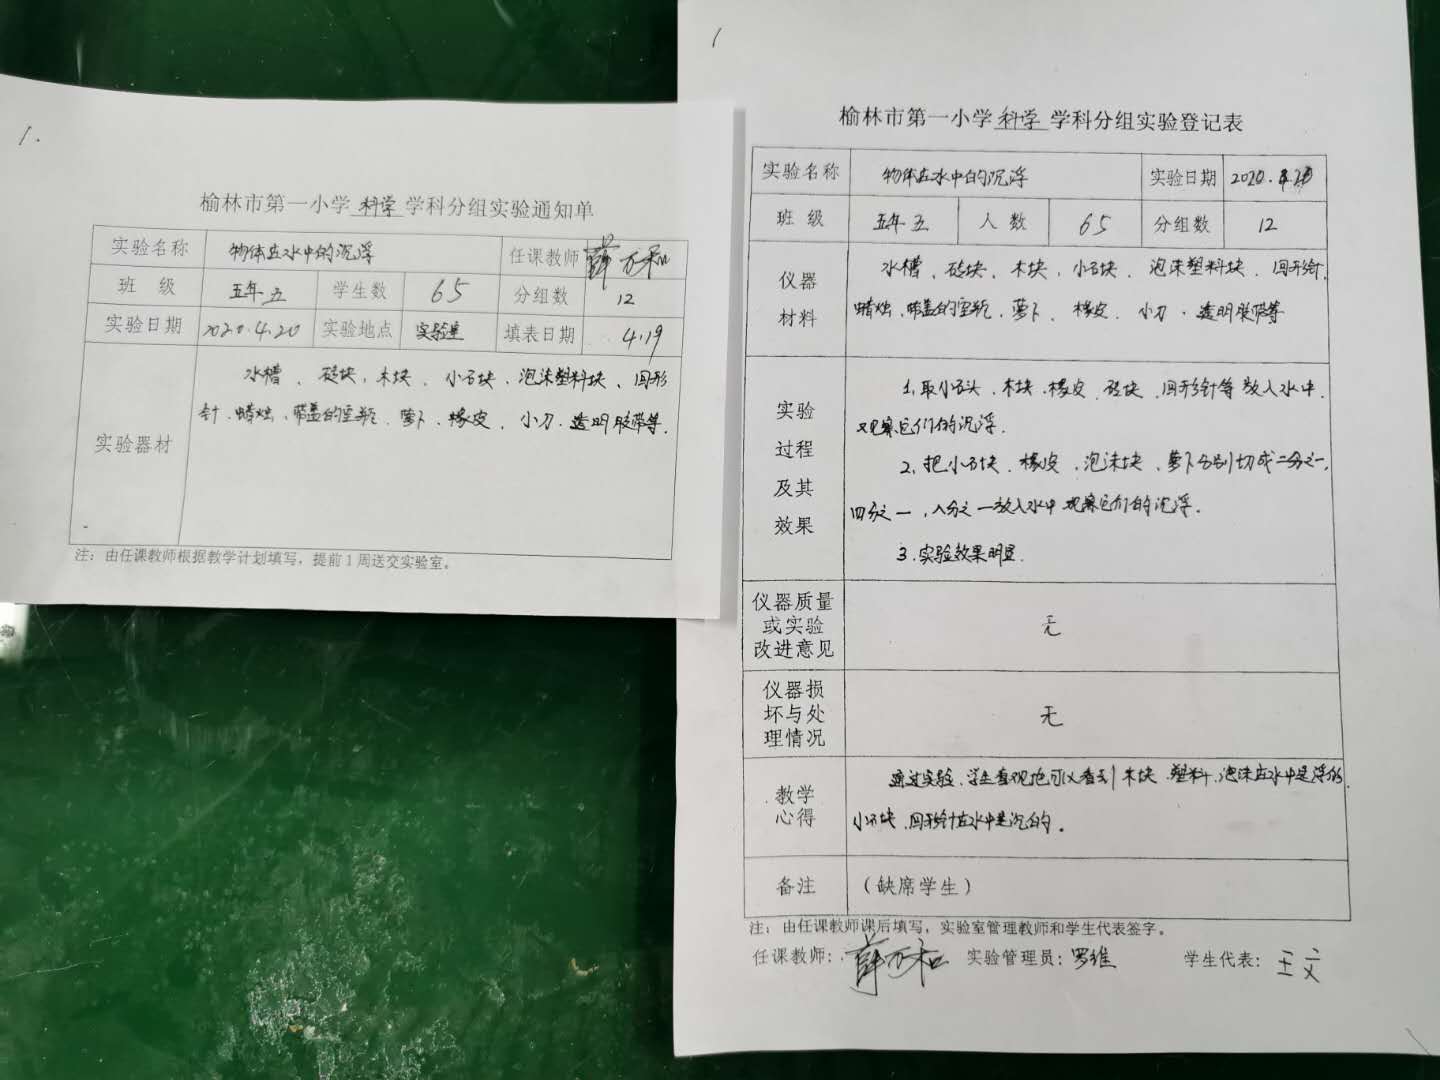 1.
榆林市第一小学 科学 学科分组实验通知单
实验名称 物体在水中的沉浮 任课教师 薛万和
班 级 五年五 学生数 65 分组数 12
实验日期 2020.4.20 实验地点 实验室 填表日期 4.19
实验器材
水槽、砖块、木块、小石块、泡沫塑料块、回形
针、蜡烛、带盖的空瓶、萝卜、橡皮、小刀、透明胶带等.
注：由任课教师根据教学计划填写，提前1周送交实验室。
1
榆林市第一小学 科学 学科分组实验登记表
实验名称 物体在水中的沉浮 实验日期 2020.
班 级 五年五 人 数 65 分组数 12
仪器
材料
水槽、砖块、木块、小石块、泡沫塑料块、回形针.
蜡烛、带盖的空瓶、萝卜、橡皮、小刀、透明胶带等
实验
过程
及其
效果
1.取小石头、木块、橡皮、砖块、回形针等放入水中.
观察它们的沉浮.
2.把小石块、橡皮、泡沫块、萝卜分别切成二分之一、
四分之一，八分之一放入水中观察它们的沉浮.
3.实验效果明显.
仪器质量
或实验
改进意见
无
仪器损
坏与处
理情况
无
教学
心得
通过实验、学生直观地可以看到木块、塑料、泡沫在水中是浮的.
小石块、回形针在水中是沉的.
备注 （缺席学生）
注：由任课教师课后填写，实验室管理教师和学生代表签字。
任课教师： 薛万和 实验管理员：罗维 学生代表：王文